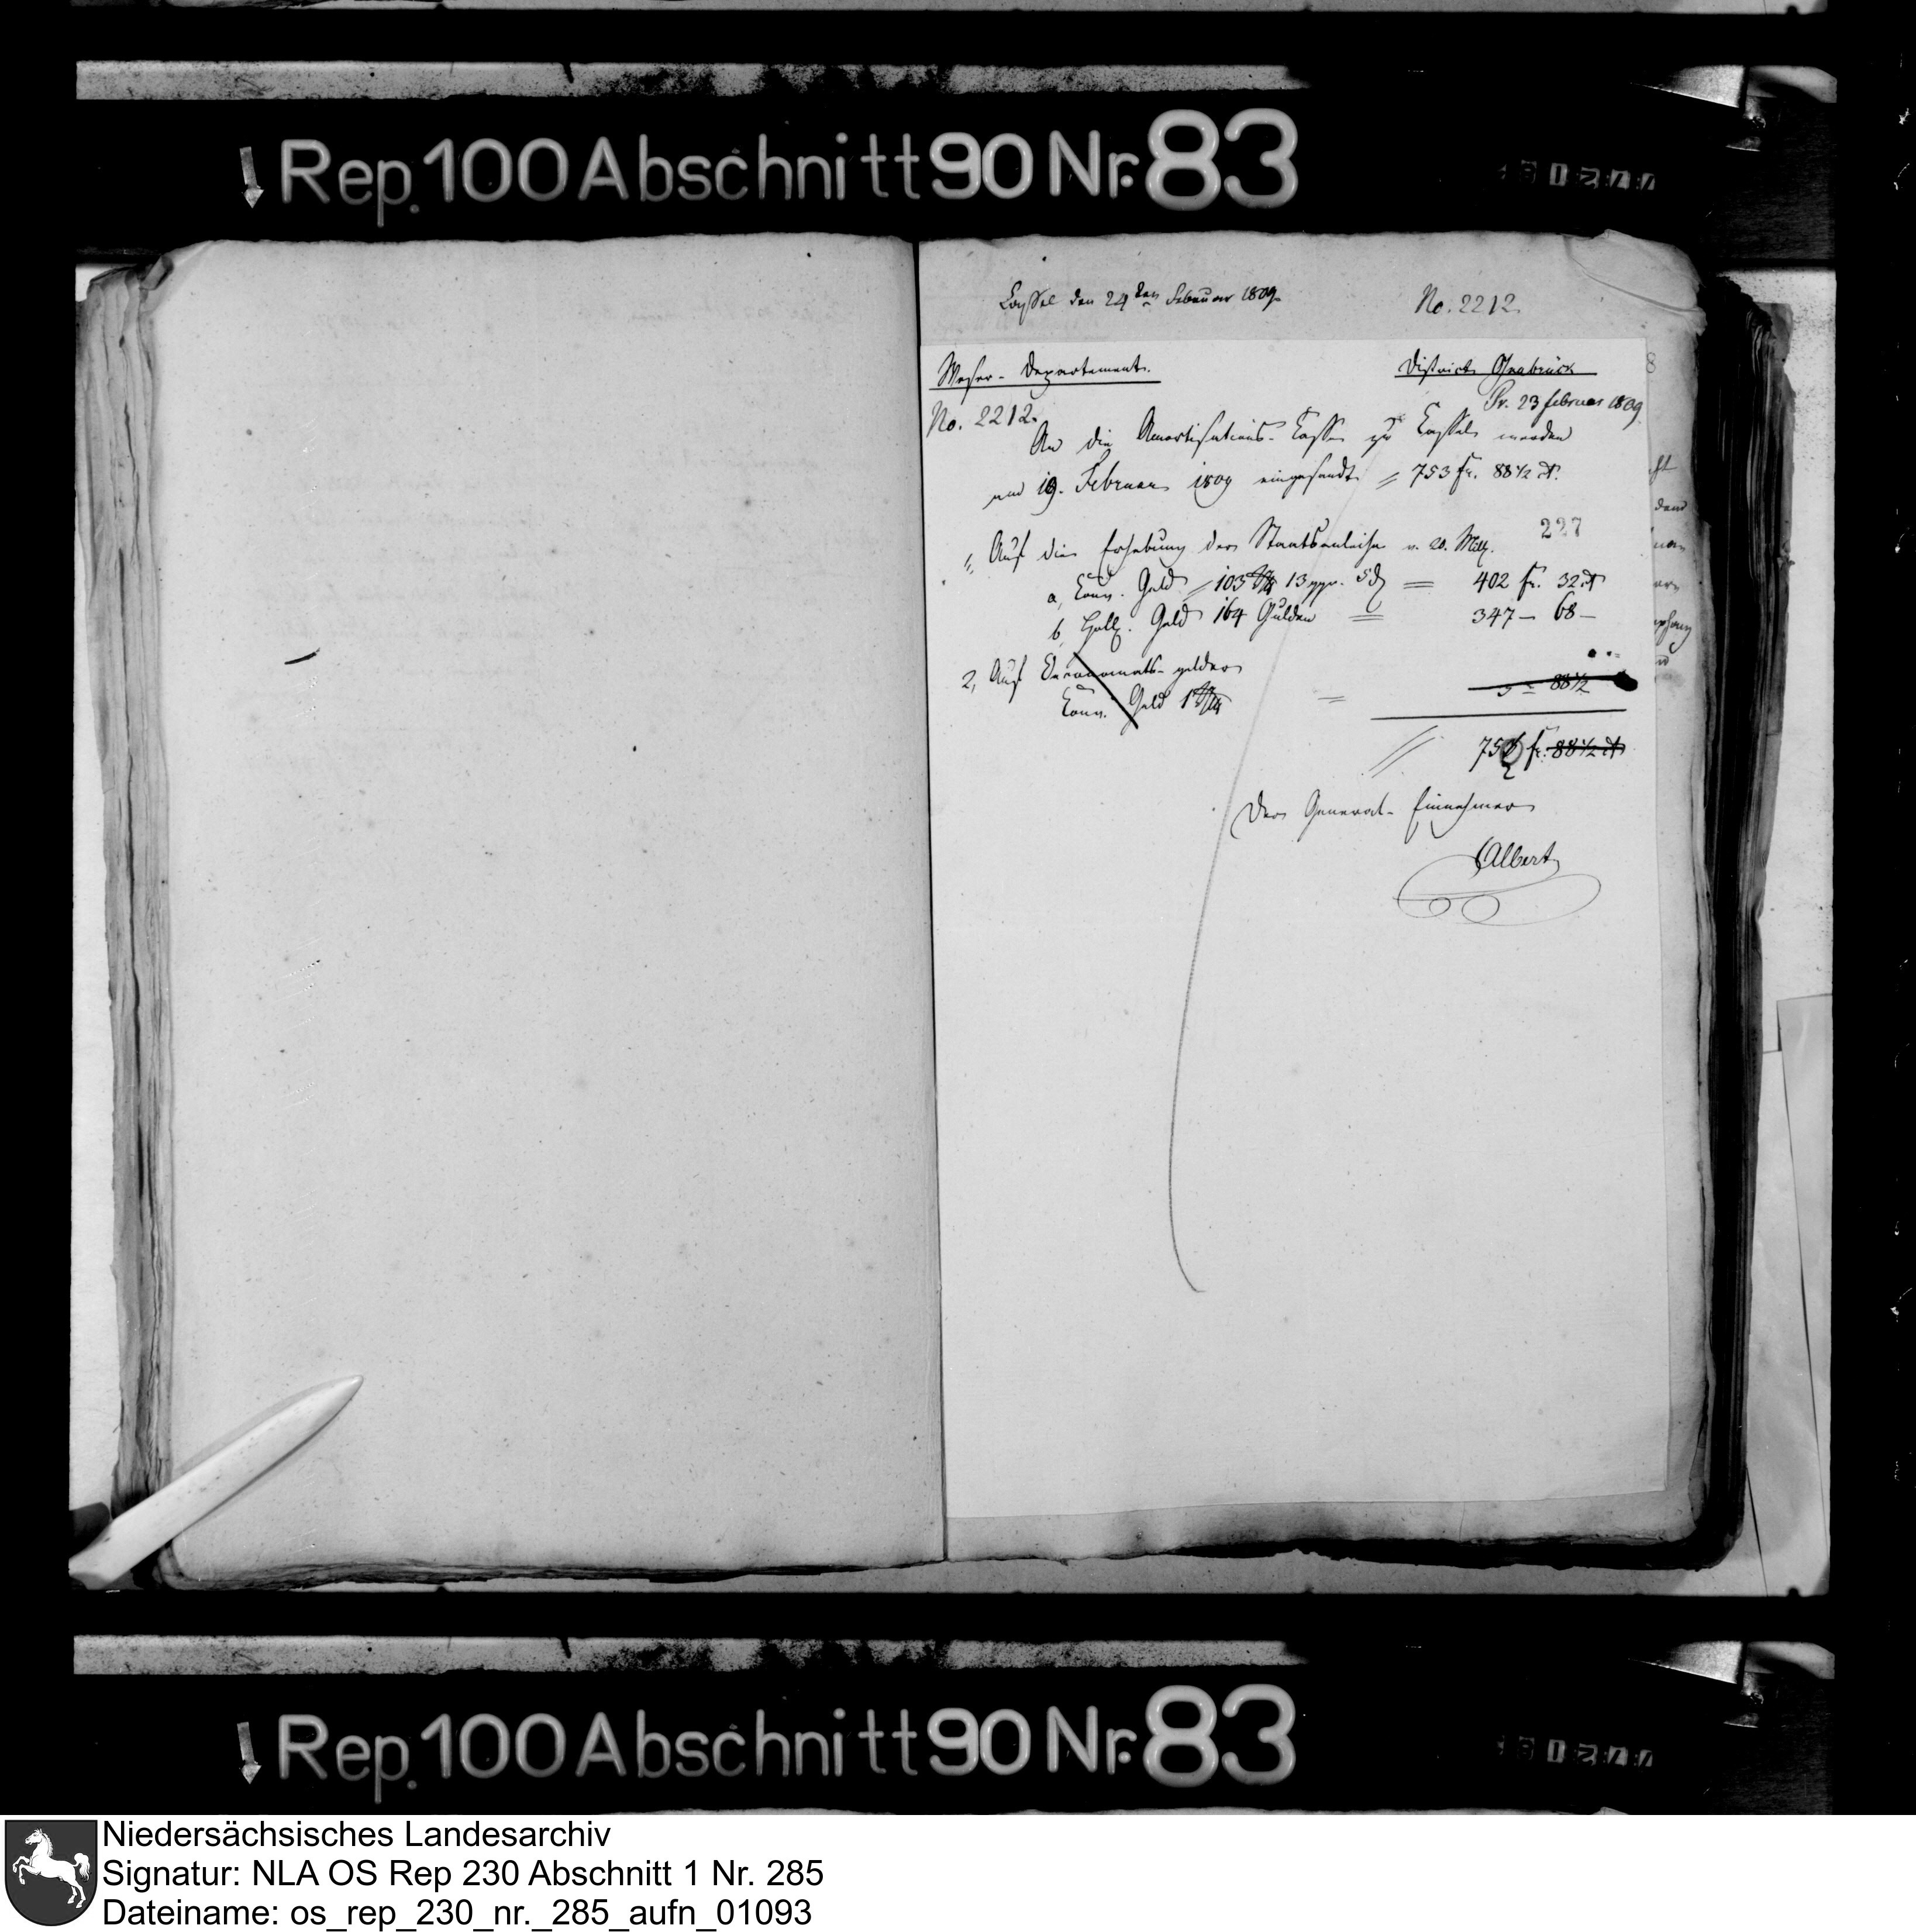 Rep. 100 Abschnitt 90 Nr. 83
Cassel den 24ten Februar 1809.
No. 2212.
Weser-Departement.
District Osnabrück
No. 2212.
Pr. 23 februar 1809.
An die Amortisations-Casse zu Cassel werden
am 19. Februar 1809 eingesandt = 753 fr. 88 1/2 ct.
227
1, Auf die Erhebung der Staatsanleihe v. 20. Mill.
a, Conv. Geld = 103 13 ggr. 5 = 402 fr. 32 ct
b, Holl. Geld 164 Gulden = 347 - 68 -
2, Auf gelder
Conv. Geld 1 = 3 = 88 1/2
75 fr. 88 1/2 ct
Der General-Einnehmer
Albert
Rep. 100 Abschnitt 90 Nr. 83
Niedersächsisches Landesarchiv
Signatur: NLA OS Rep 230 Abschnitt 1 Nr. 285
Dateiname: os_rep_230_nr._285_aufn_01093